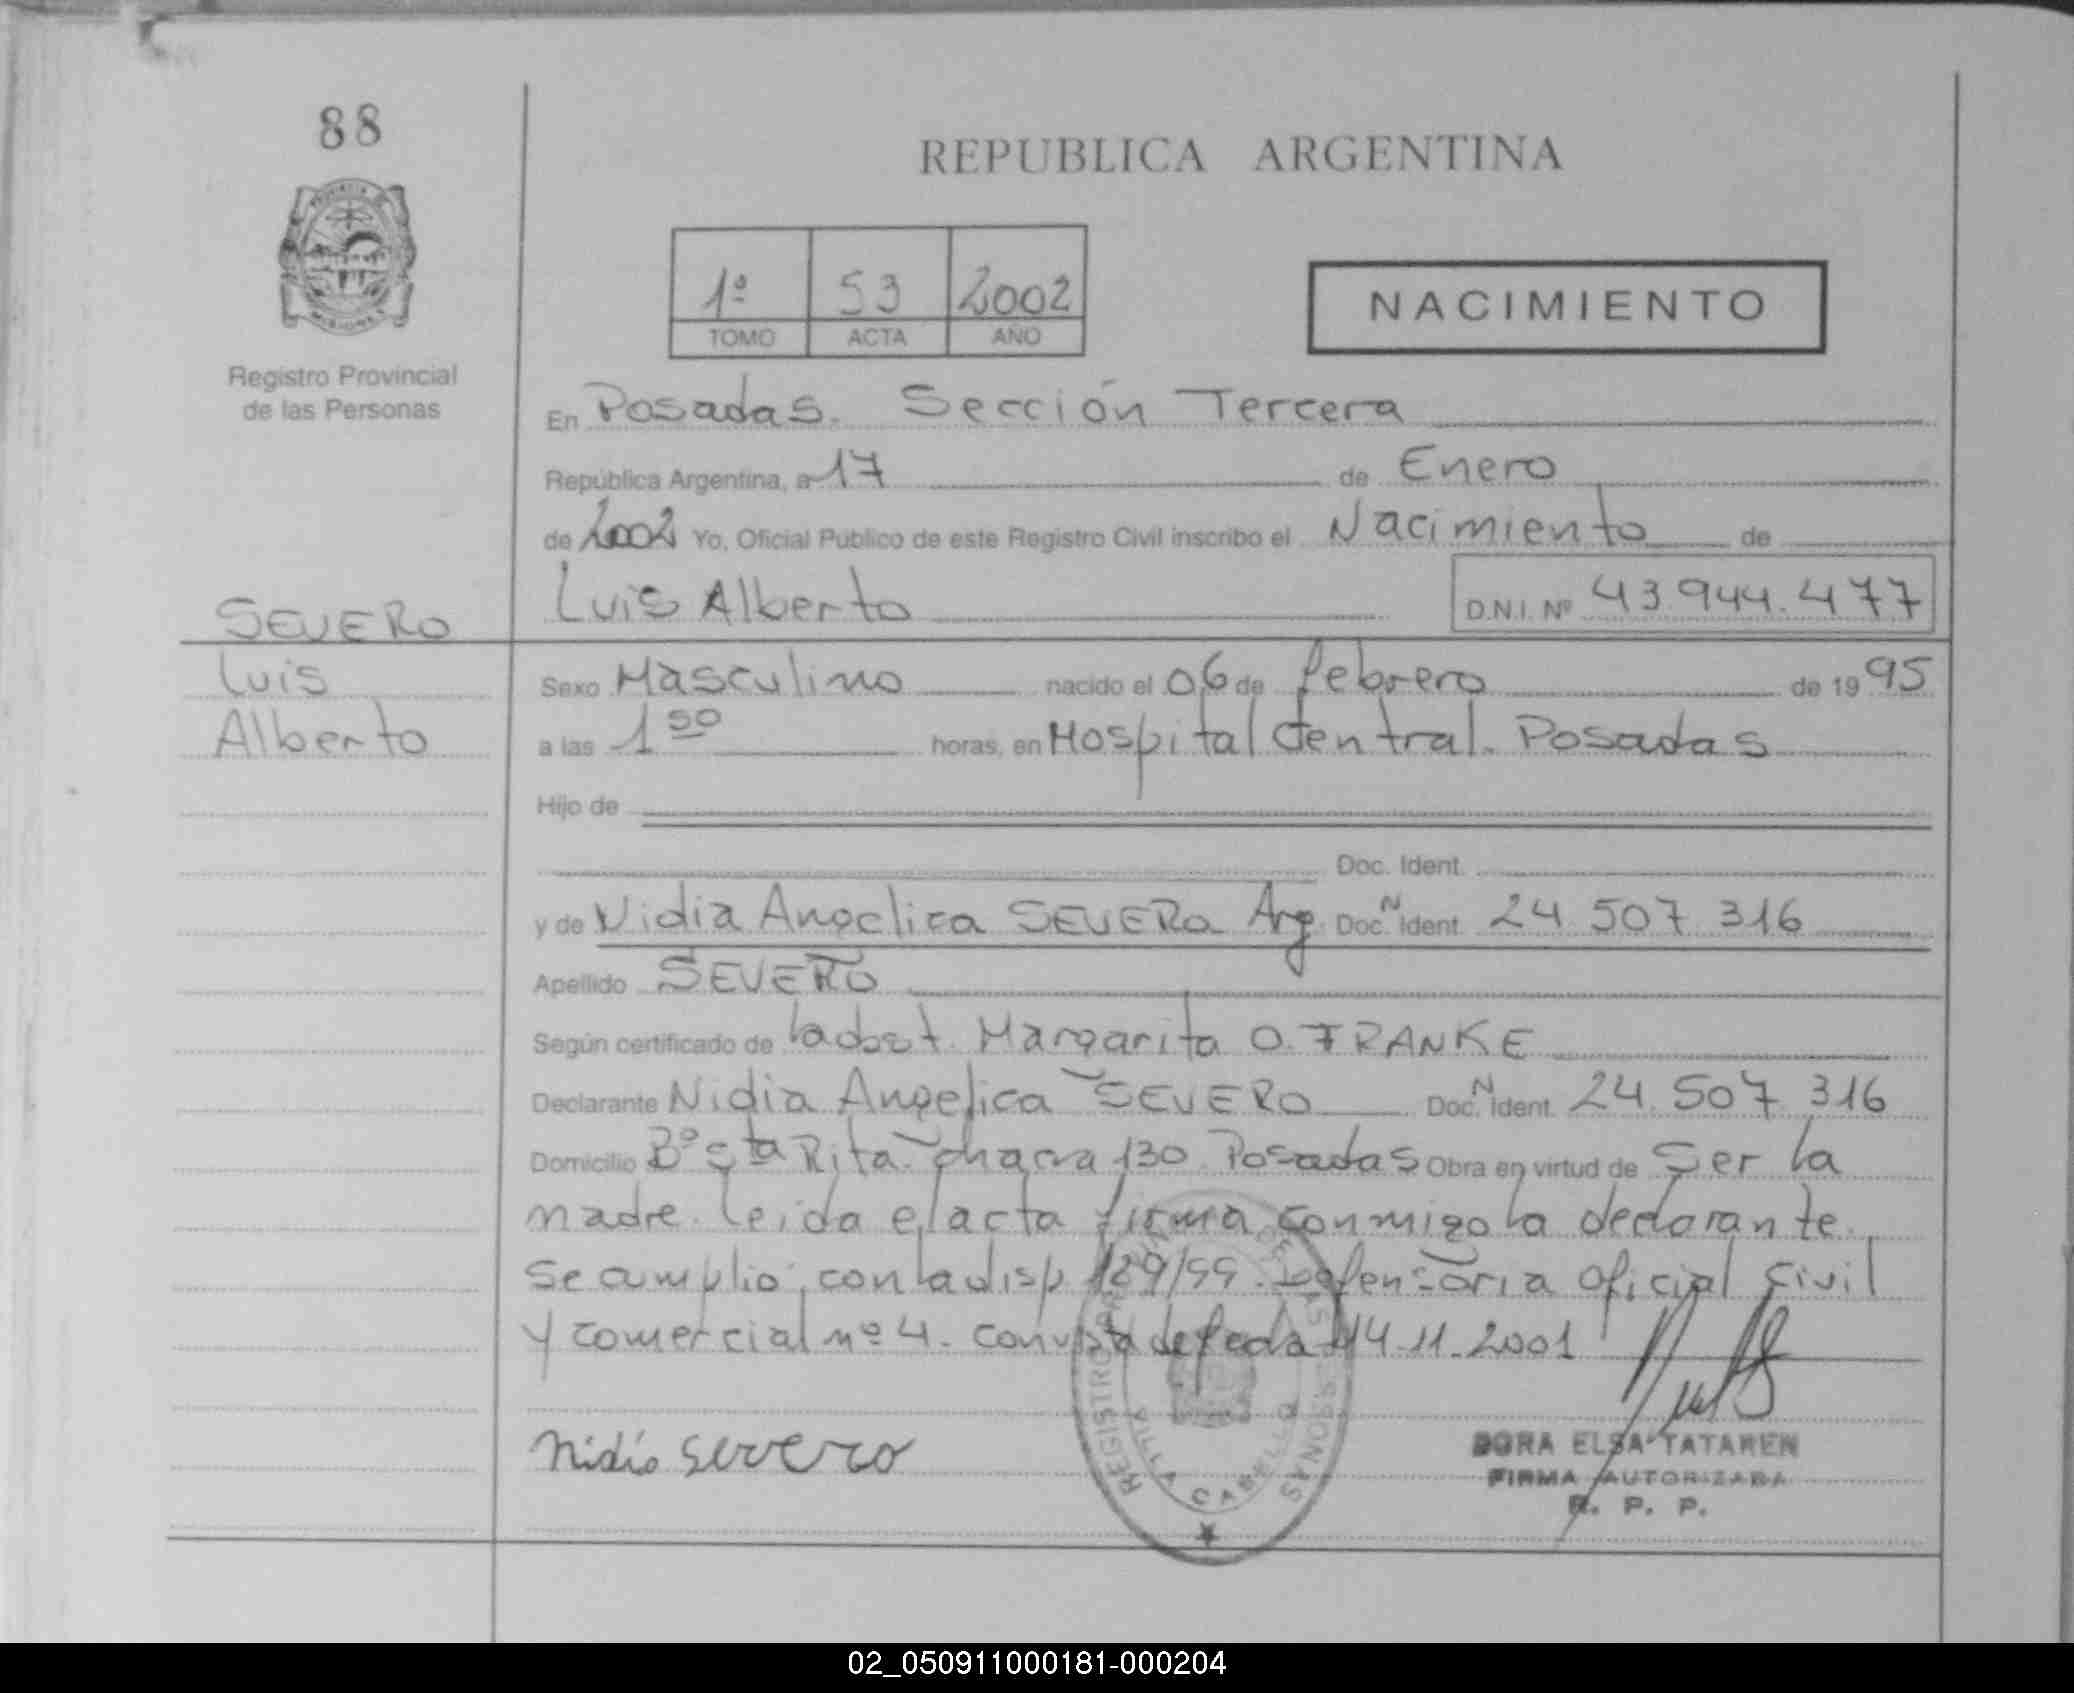 88
REPUBLICA ARGENTINA
PROVINCIA DE
MISIONES
1º 53 2002
TOMO ACTA AÑO
NACIMIENTO
Registro Provincial
de las Personas
En Posadas. Sección Tercera
República Argentina, a 17 de Enero
de 2002 Yo, Oficial Público de este Registro Civil inscribo el Nacimiento de
Luis Alberto D.N.I. Nº 43.944.477
SEVERO
Luis
Alberto
Sexo Masculino nacido el 06 de febrero de 19 95
a las 1 50 horas, en Hospital Central. Posadas
Hijo de
Doc. Ident.
y de Nidia Angelica SEVERO Arg. Doc. N Ident. 24.507.316
Apellido SEVERO
Según certificado de la obst. Margarita O. FRANKE
Declarante Nidia Angelica SEVERO Doc. N Ident. 24.507.316
Domicilio Bº Sta Rita chacra 130 Posadas Obra en virtud de Ser la
madre. leida el acta firma conmigo la declarante.
Se amplio con la disp 189/99. Defensoria Oficial Civil
y comercial nº 4. con vista de fecha 14.11.2001
Nidia Severo
REGISTRO PROVINCIAL DE LAS PERSONAS
VILLA CABELLO
DORA ELSA TATAREN
FIRMA AUTORIZADA
R. P. P.
02_050911000181-000204